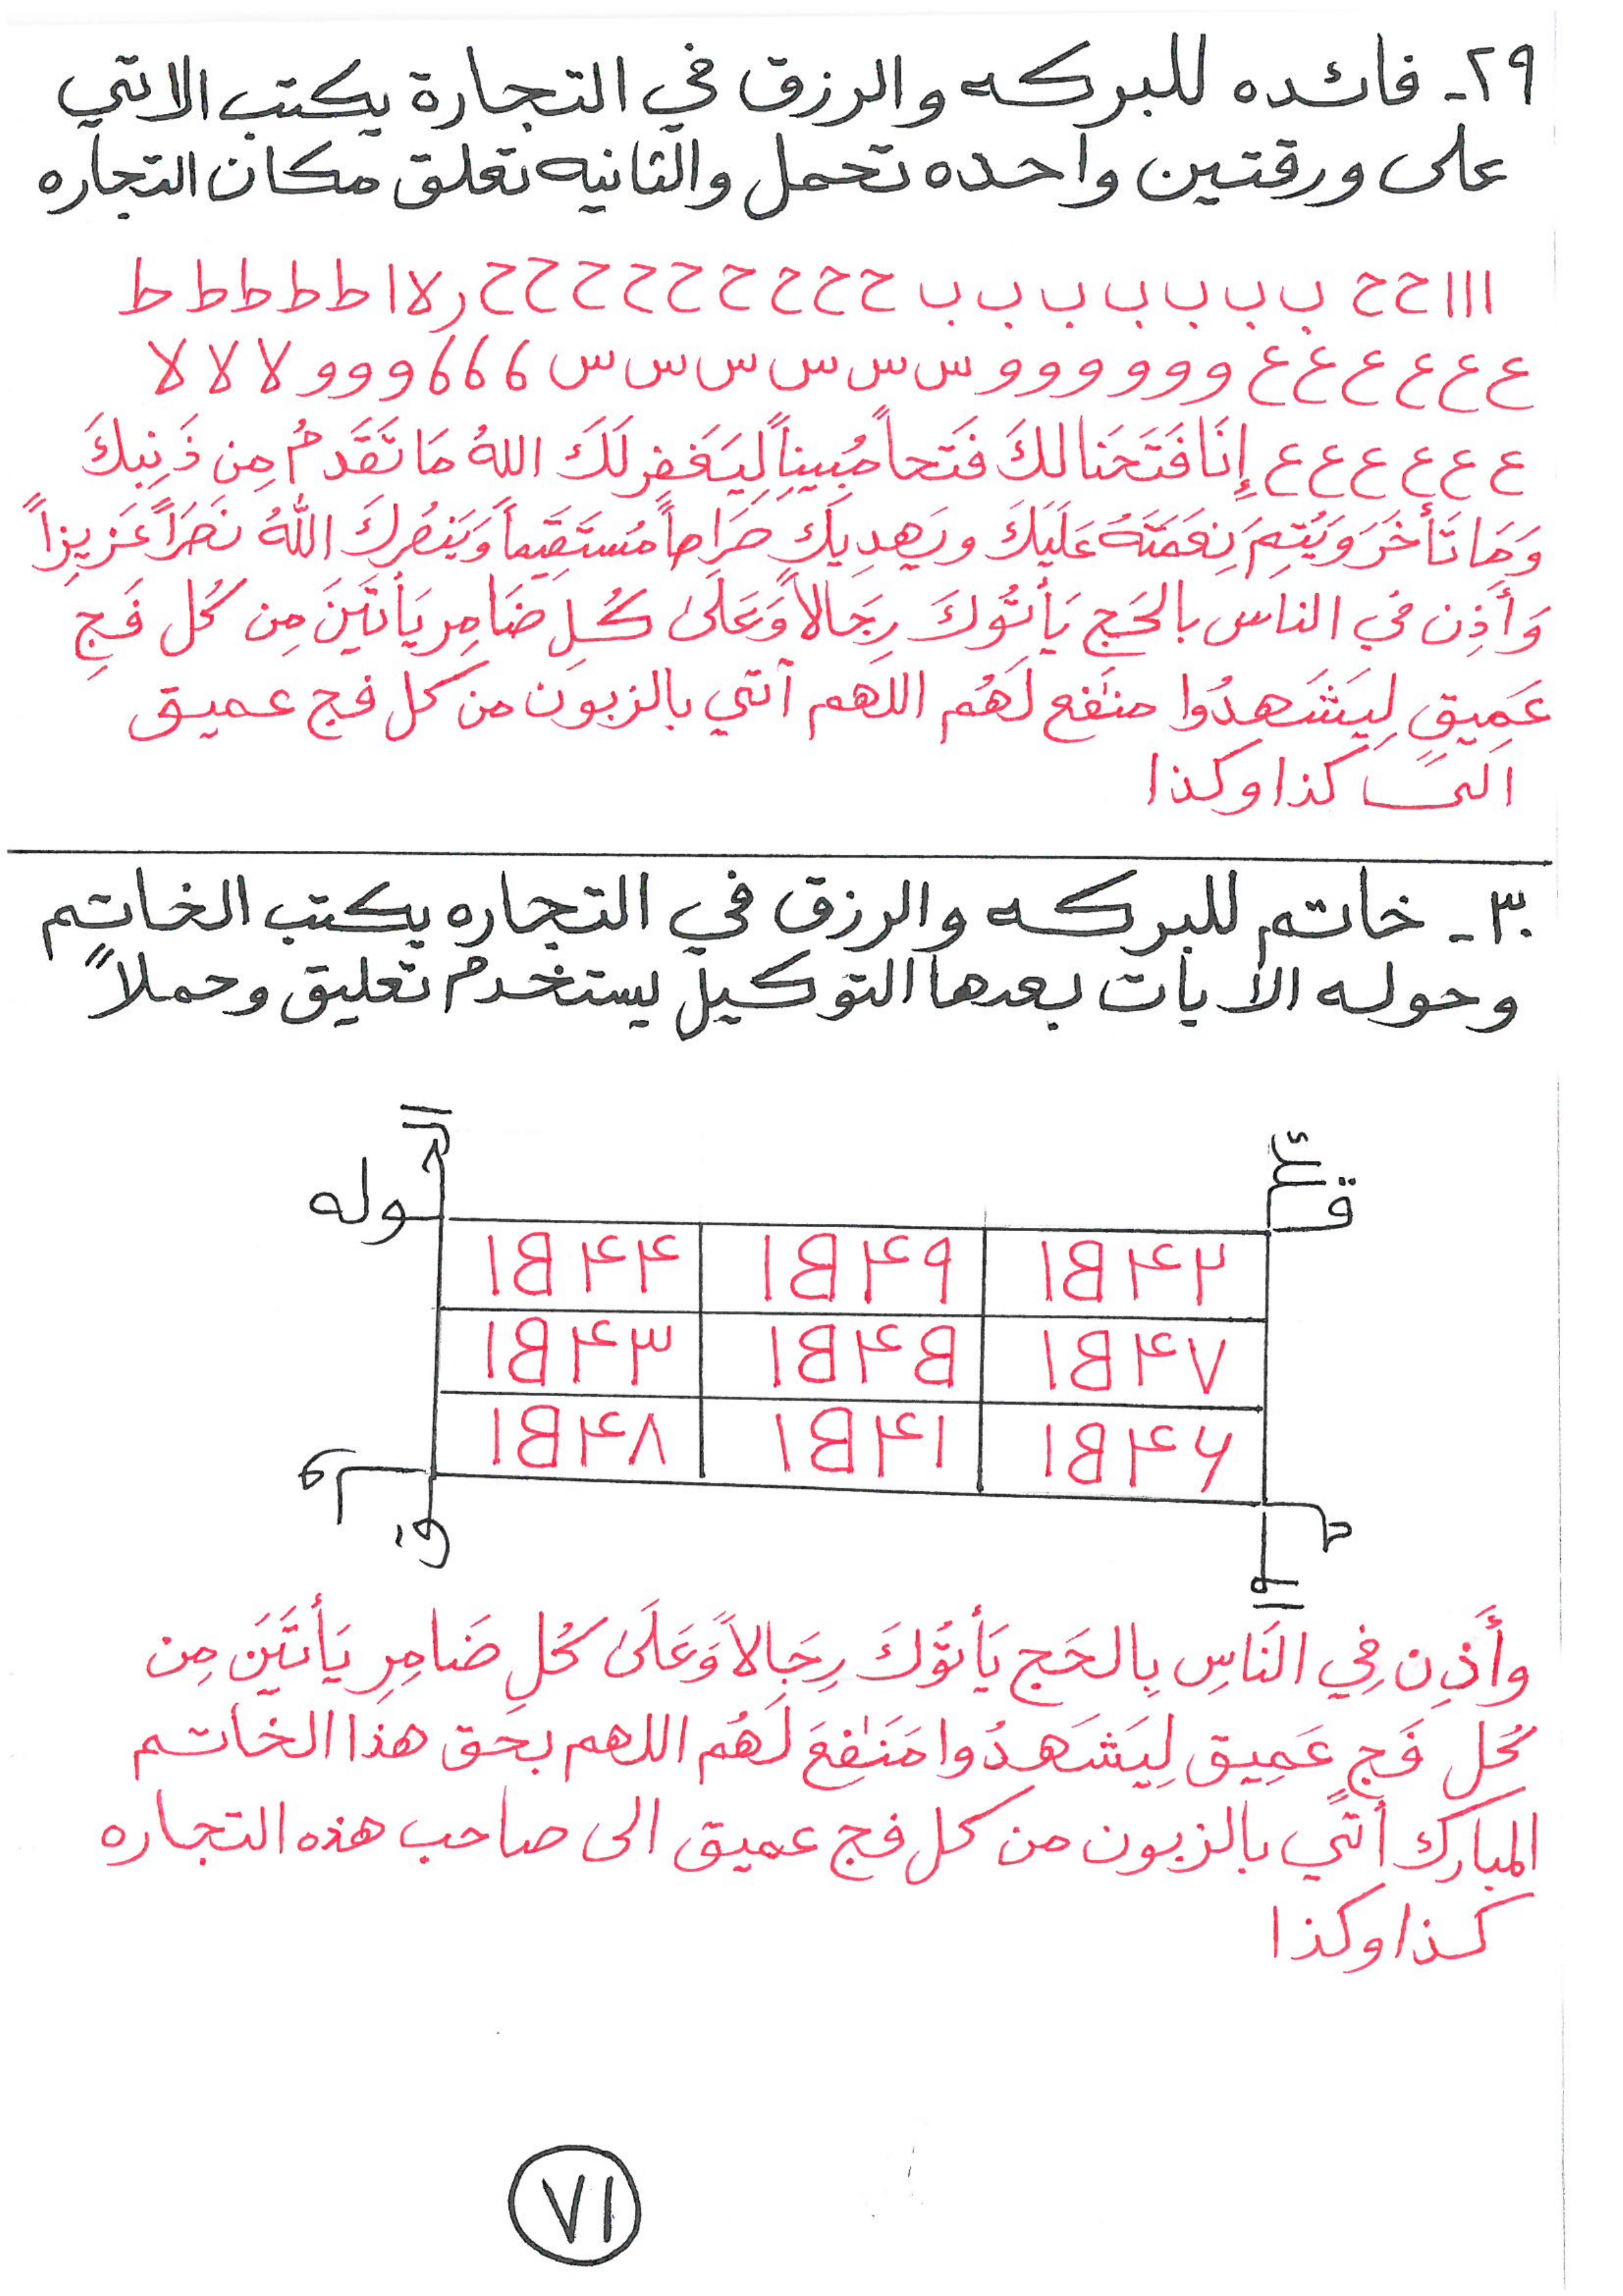 ٢٩- فائده للبركه والرزق في التجارة يكتب الاتي
على ورقتين واحده تحمل والثانيه تعلق مكان التجاره
ااا ح ح ب ب ب ب ب ب ب ح ح ح ح ح ح ح ح ح ر لا ا ط ط ط ط ط
ع ع ع ع ع ع و و و و و و س س س س س س 6 6 6 و و و لا لا لا
ع ع ع ع ع ع إِنَا فَتَحَنا لكَ فَتَحاً مُبِيناً لِيَغَفِر لَكَ اللهُ مَا تَقَدمُ مِن ذَنِبكَ
وَمَا تَأخَرَ وَيُتِمَ نِعَمَتَهُ عَلَيَكَ ويَهدِيَك صَراطاً مُستَقِيَماً وَيَنصُركَ اللهُ نَصَراً عَزِيزاً
وَأَذِن في الناس بالحَج يَأتُوكَ رِجَالاً وَعَلَىٰ كُلِ ضَامِر يَأتَيَنَ مِن كُل فَجٍ
عَمِيقٍ لِيَشَهدُوا منَٰفع لَهُم اللهم آتي بالزبون من كل فج عميق
الى كذا وكذا
٣٠- خاتم للبركه والرزق في التجاره يكتب الخاتم
وحوله الأيات بعدها التوكيل يستخدم تعليق وحملاً
قوله
١B۴۲ ١B۴۹ ١B۴۴
١B۴٧ ١B۴B ١B۴۳
١B۴۶ ١B۴١ ١B۴٨
وأَذِن فِي الَنَاسِ بِالحَج يَأتُوَكَ رِجَالاً وَعَلَىٰ كُلِ ضَامِرِ يَأتَيَنَ مِن
كُل فَج عَمِيق لِيَشَهدُوا مَنَٰفعَ لَهُم اللهم بحق هذا الخاتم
المبارك أتي بالزبون من كل فج عميق الى صاحب هذه التجاره
كذا وكذا
٧١